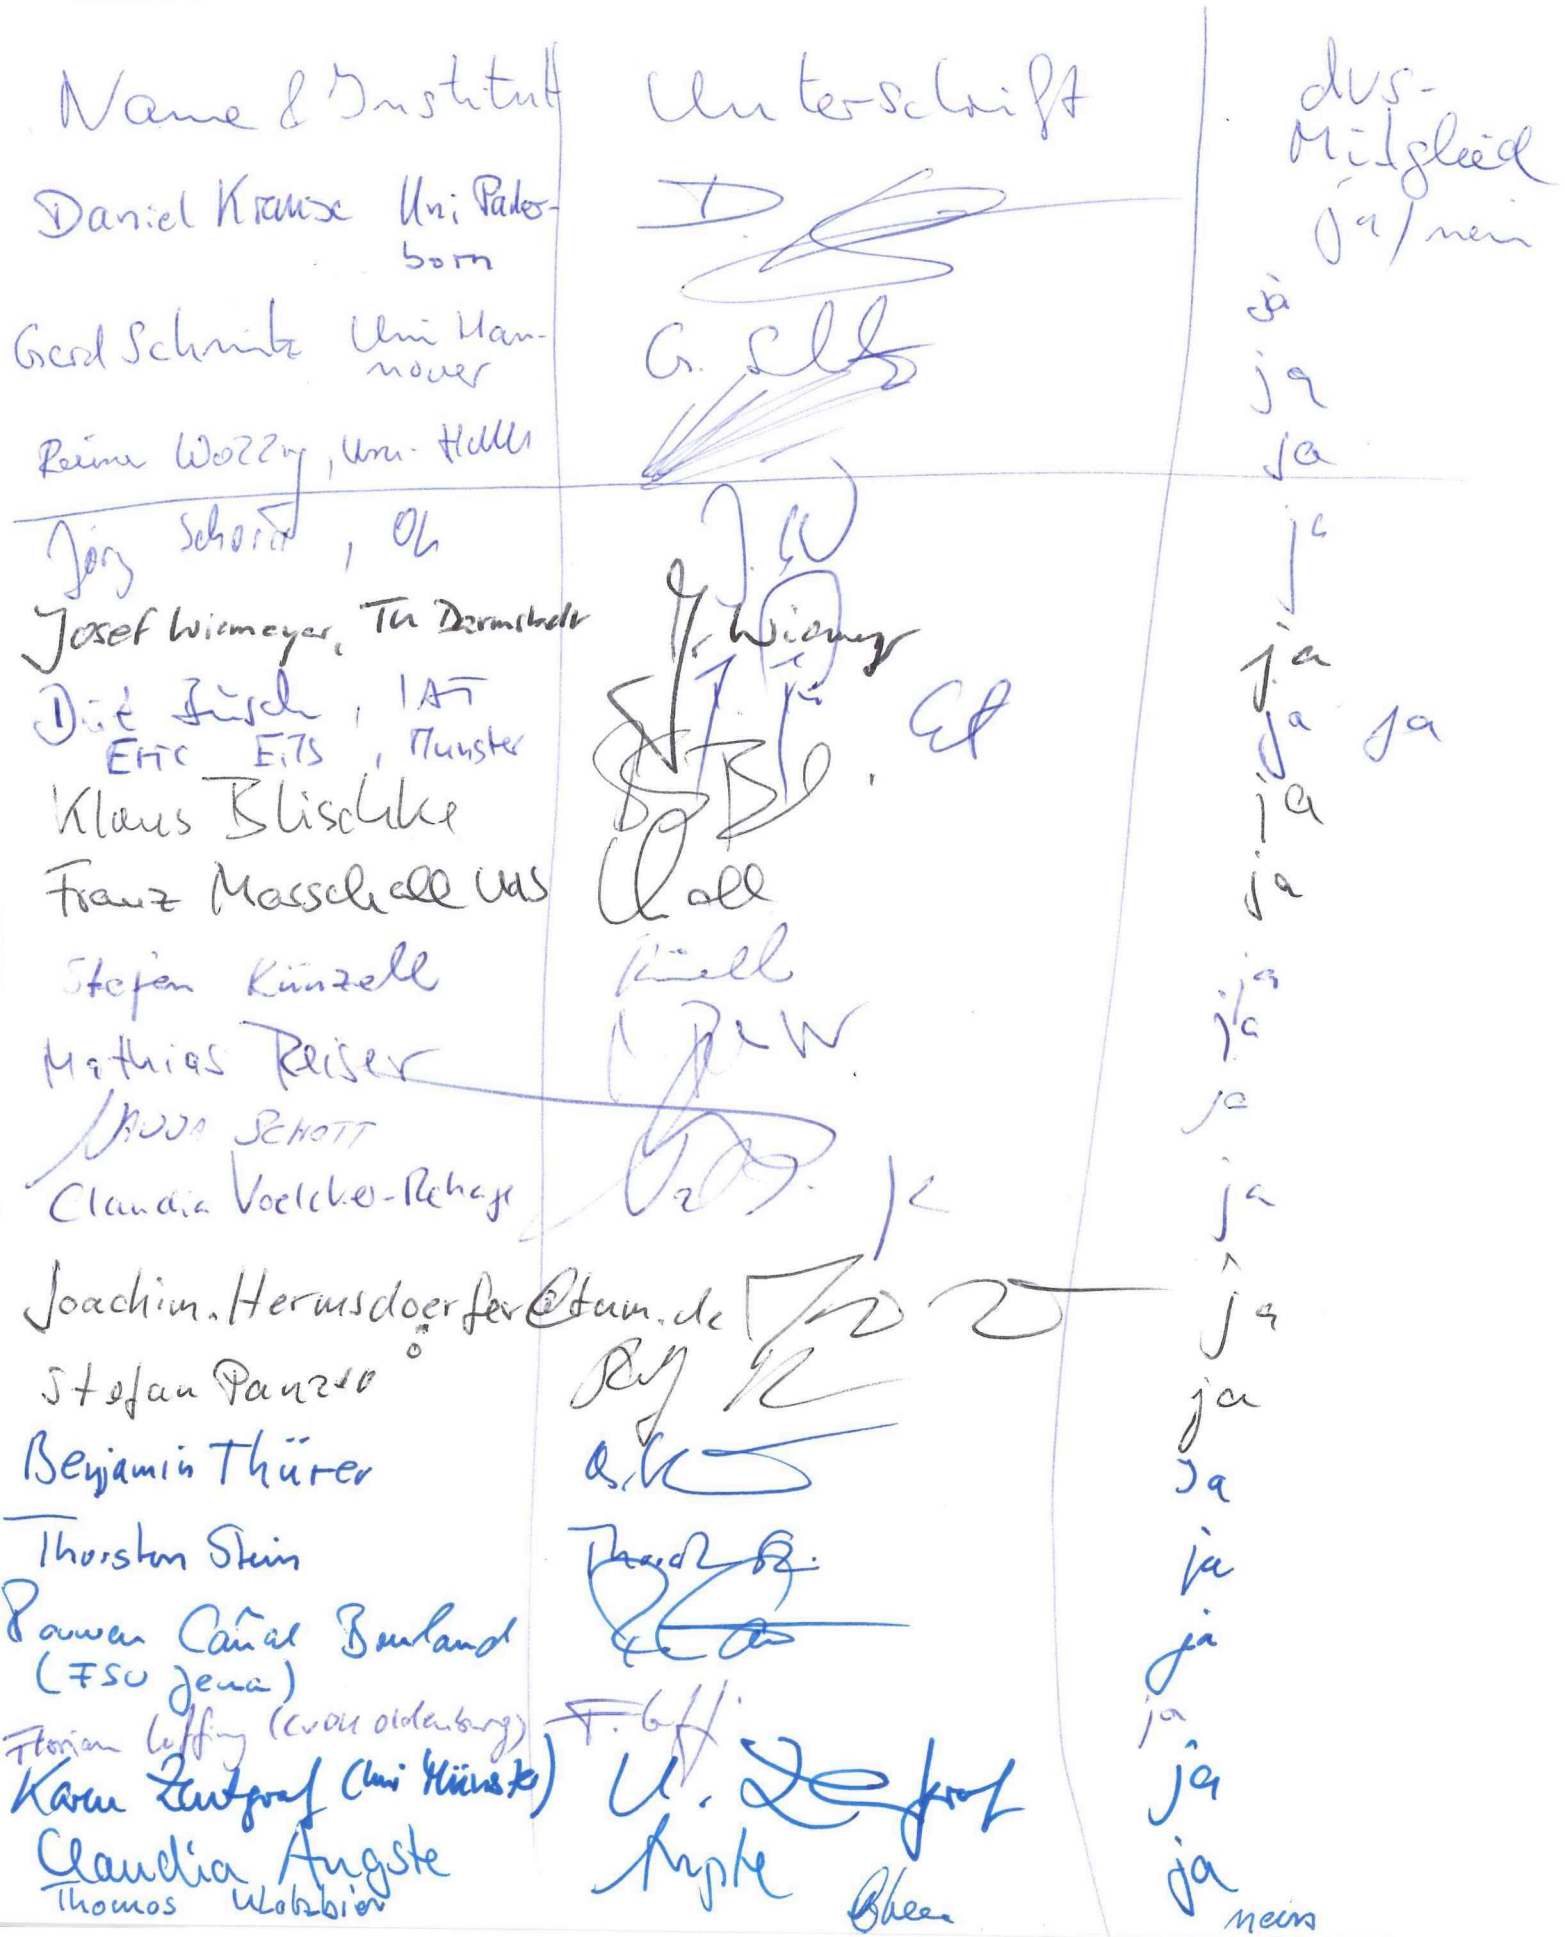 Name & Institut Unterschrift dvs-
Mitglied
ja/nein
Daniel Krause Uni Pader-
born D. ja
Gerd Schmitz Uni Han-
nover G. ja
Uni- Halle ja
Jörg J. ja
Josef Wiemeyer, TU Darmstadt J. Wiemeyer ja
Dirk Büsch, IAT ja ja
Eric Eils, Münster
Klaus Blischke ja
Franz Marschall UdS ja
Stefan Künzell ja
Mathias Reiser ja
SCHOTT ja
Claudia Voelcker-Rehage ja
Joachim.Hermsdoerfer@tum.de ja
ö
Stefan Panzer ja
Benjamin Thürer Ja
Thorsten Stein ja
Rouwen Cañal Bruland ja
(FSU Jena)
Florian Loffing (CvOU Oldenburg) F. Loff. ja
Karen Zentgraf (Uni Münster) K. Zentgraf ja
Claudia Augste Augste ja
Thomas Klotzbier nein